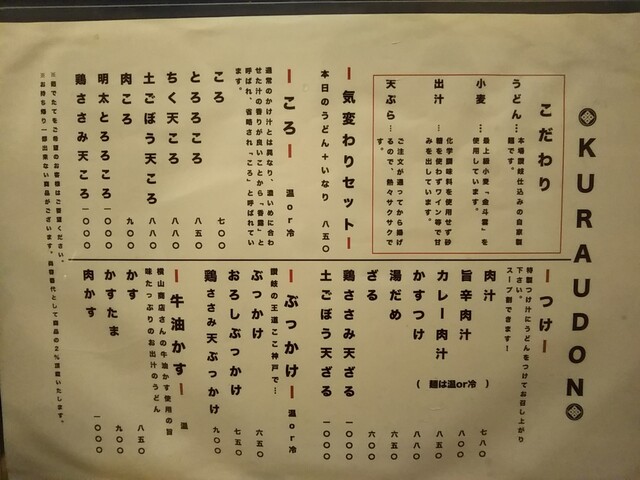 KURAUDON
こだわり
うどん…本場讃岐仕込みの自家製
麺です。
小麦…最上級小麦「金斗雲」を
使用しています。
出汁…化学調味料を使用せず砂
糖を使わずワイン等で甘
みを出しています。
天ぷら…ご注文が通ってから揚げ
るので、熱々サクサクで
す。
気変わりセット
本日のうどん+いなり 八五〇
ころ 温or冷
通常のかけ汁とは異なり、濃いめに合わ
せた汁の香りが良いことから「香露」と
呼ばれ、省略され「ころ」と呼ばれてい
ます。
ころ 七〇〇
とろろころ 八五〇
ちく天ころ 八八〇
土ごぼう天ころ 八八〇
肉ころ 九〇〇
明太とろろころ 一〇〇〇
鶏ささみ天ころ 一〇〇〇
つけ
特製つけ汁にうどんをつけてお召し上がり
下さい。
スープ割できます!
肉汁 七八〇
旨辛肉汁 八〇〇
カレー肉汁 八八〇
かすつけ 八八〇
(麺は温or冷)
湯だめ 六五〇
ざる 六〇〇
鶏ささみ天ざる 一〇〇〇
土ごぼう天ざる 一〇〇〇
ぶっかけ 温or冷
讃岐の王道ここ神戸で…
ぶっかけ 六五〇
おろしぶっかけ 七五〇
鶏ささみ天ぶっかけ 九〇〇
牛油かす 温
横山商店さんの牛油かす使用の旨
味たっぷりのお出汁のうどん
かす 八五〇
かすたま 九〇〇
肉かす 一〇〇〇
※お持ち帰り一部出来ない商品がございます。